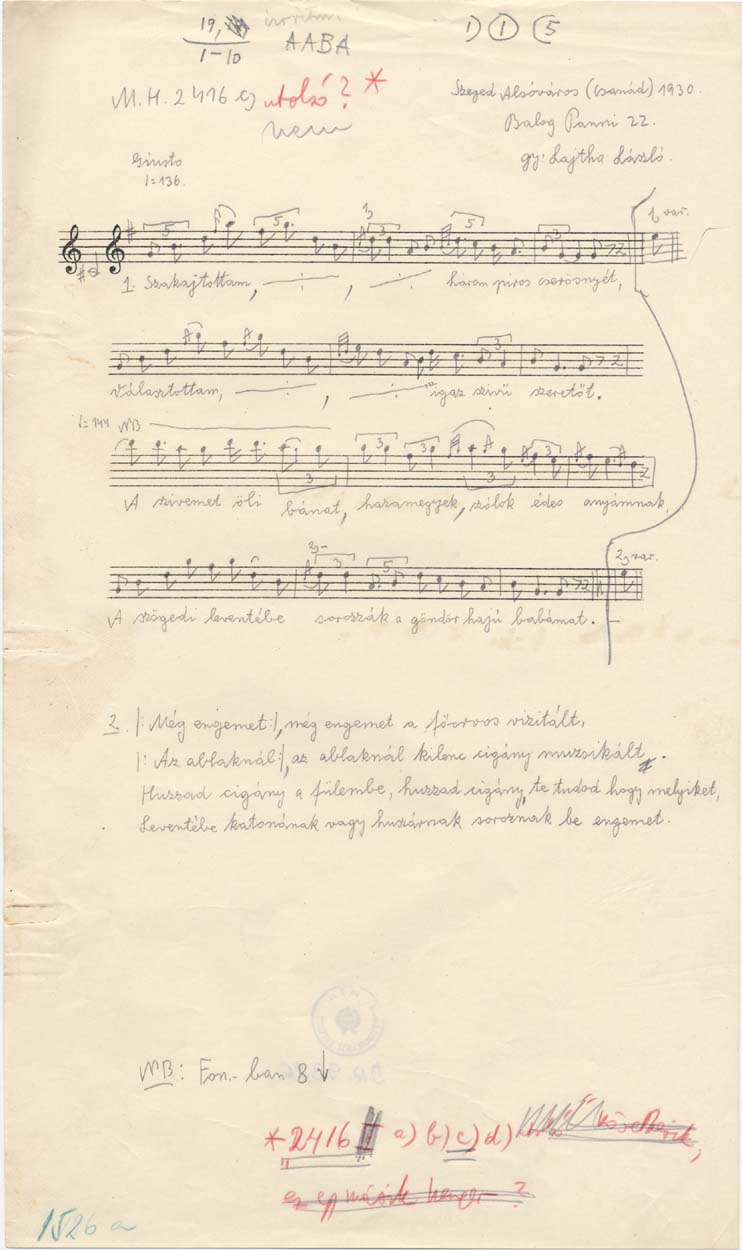 19,
1–10
AABA
1) 1 (5
M.H. 2416 c) utolsó? *
nem
Szeged Alsóváros (Csanád) 1930.
Balog Panni 22.
gy: Lajtha László.
Giusto
136.
5 5 3 3 5 3 1) var.
1. Szakajtottam, —:—, —:— három piros cserösnyét,
3
Választottam, —:—, —:— igaz szivü szeretőt.
144 NB
3 3 3 3 3
A szivemet öli bánat, hazamegyek, szólok édes anyámnak,
2) 3 5 2) var.
A szögedi leventébe sorozzák a göndör hajú babámat.
2. |: Még engemet :|, még engemet a főorvos vizitált,
|: Az ablaknál :|, az ablaknál kilenc cigány muzsikált.
Huzzad cigány a fülembe, huzzad cigány, te tudod hogy melyiket,
Leventébe katonának vagy huszárnak soroznak be engemet.
NB: Fon.-ban 8 ↓
* 2416 a) b) c) d)
ez egy másik henger?
1526 a